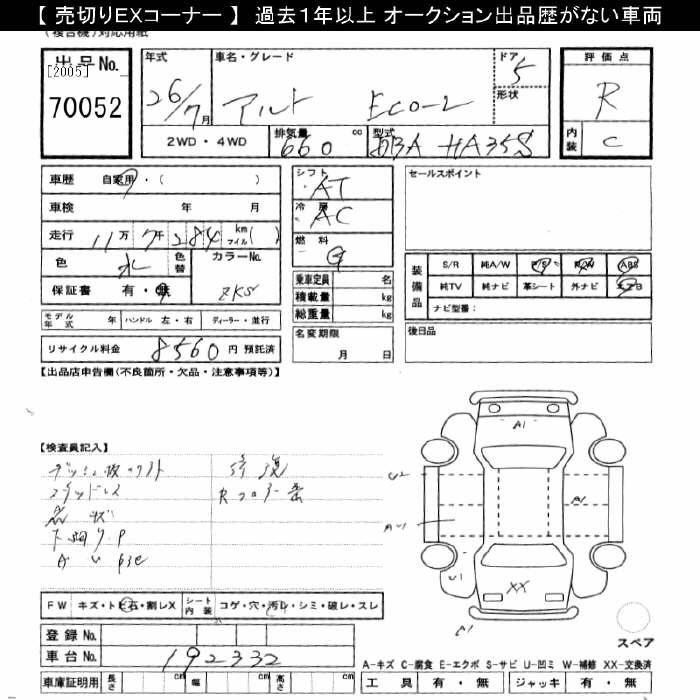 【 売切りEXコーナー 】 過去1年以上 オークション出品歴がない車両
(複合機)対応用紙
出品No.
[2005]
70052
年式
26/7月
車名・グレード
アルト ECO-L
ドア
5
形状
評価点
R
内装
C
2WD・4WD
排気量
660 cc
型式
DBA HA35S
車歴 自家用・( )
車検 年 月
走行 11万7千284 km マイル( )
色 水
色替
カラーNo.
ZKS
保証書 有・無
シフト
AT
冷房
AC
燃料
G
乗車定員 名
積載量 kg
総重量 kg
セールスポイント
装備品
S/R 純A/W P/S P/W ABS
純TV 純ナビ 革シート 外ナビ エアB
ナビ型番:
モデル年式 年 ハンドル 左・右 ディーラー・並行
名変期限
月 日
後日品
リサイクル料金 8560 円 預託済
【出品店申告欄(不良箇所・欠品・注意事項等)】
【検査員記入】
修復
A1
A1
U1
XX
A1
FW キズ・トビ石・割レX
シート内装 コゲ・穴・汚レ・シミ・破レ・スレ
登録 No.
車台 No. 192332
車庫証明用 長さ cm 幅 cm 高さ cm
スペア
A-キズ C-腐食 E-エクボ S-サビ U-凹ミ W-補修 XX-交換済
工具 有・無 ジャッキ 有・無